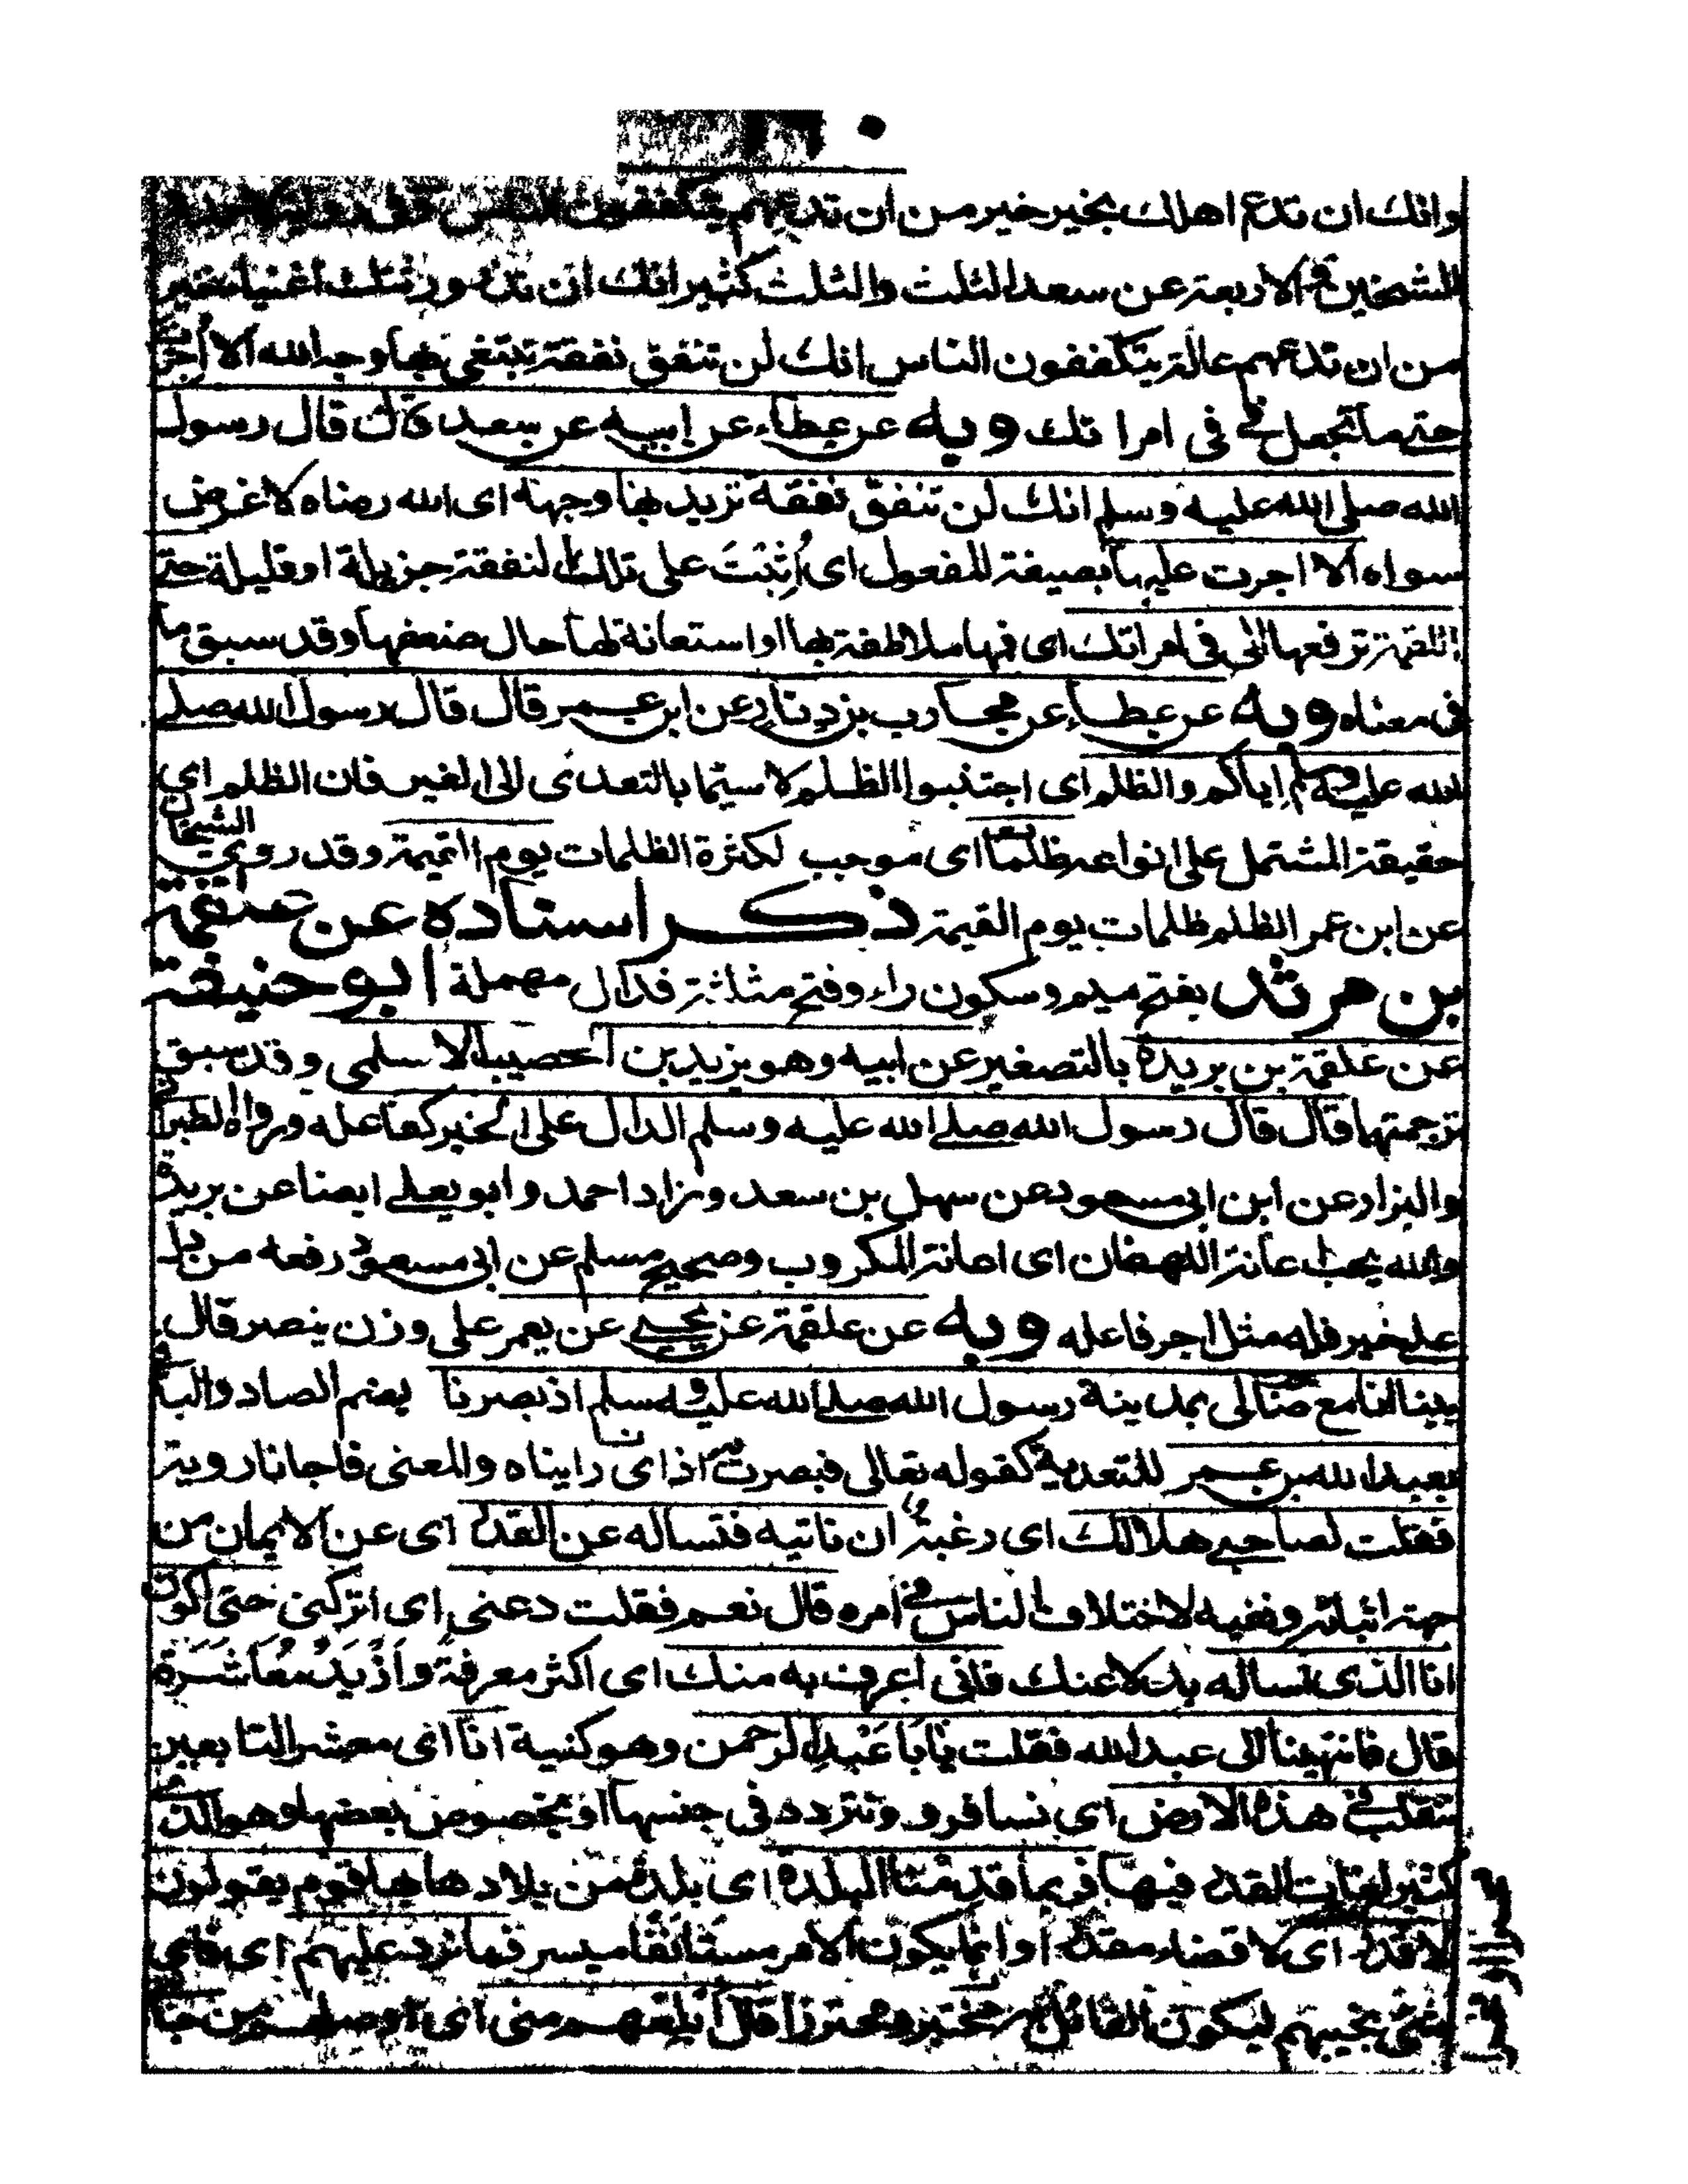 وانك ان تدع اهلك بخير خير من ان تدعهم يتكففون الناس وفى رواية
للشيخين والاربعة عن سعد الثلث والثلث كثير انك ان تدع ورثتك اغنياء خير
من ان تدعهم عالة يتكففون الناس انك لن تنفق نفقة تبتغى بها وجه الله الا اُجرت
حتى ما تجعل فى فى امراتك وبه عن عطاء عن ابيه عن سعد قال قال رسول
الله صلى الله عليه وسلم انك لن تنفق نفقة تريد بها وجهه اى الله رضاه لا غرض
سواه الا اجرت عليها بصيغة المفعول اى اُثِبْتَ على تلك النفقة جزيلة او قليلة حتى
اللقمة ترفعها الى فى امراتك اى فمها ملاطفة بها او استعانة لها حال ضعفها وقد سبق ما
فى معناه وبه عن عطاء عن محارب بن دثار عن ابن عمر قال قال رسول الله صلى
الله عليه وسلم اياكم والظلم اى اجتنبوا الظلم لا سيما بالتعدى الى الغير فان الظلم اى
حقيقة المشتمل على انواعه ظلمات اى موجب لكثرة الظلمات يوم القيمة وقد روى الشيخان
عن ابن عمر الظلم ظلمات يوم القيمة ذكر اسناده عن علقمة
بن مرثد بفتح ميم وسكون راء وفتح مثلثة فدال مهملة ابو حنيفة
عن علقمة بن بريدة بالتصغير عن ابيه وهو بزيد بن الحصيب الاسلمى وقد سبق
ترجمتها قال قال رسول الله صلى الله عليه وسلم الدال على الخير كفاعله ورواه الطبرا
والبزار عن ابن ابى مسعود عن سهل بن سعد وزاد احمد وابو يعلى ايضا عن بريدة
والله يحب اغاثة اللهفان اى اعانة المكروب وصحيح مسلم عن ابى مسعود رفعه من دل
على خير فله مثل اجر فاعله وبه عن علقمة عن يحيى عن يعمر على وزن ينصر قال
بينا انا مع صاحب لى بمدينة رسول الله صلى الله عليه وسلم اذ بصرنا بضم الصاد والباء
بعبد الله بن عمر للتعدية كقوله تعالى فبصرت به اذ اى رايناه والمعنى فاجانا روية
فقلت لصاحبى هل لك اى رغبة ان ناتيه فنساله عن القدر اى عن الايمان من
جهة اثباته ونفيه لاختلاف الناس فى امره قال نعم فقلت دعنى اى اتركنى حتى اكون
انا الذى اساله بدلا عنك فانى اعرف به منك اى اكثر معرفة وازيد معاشرة
قال فانتهينا الى عبد الله فقلت يا ابا عبد الرحمن وهو كنية انا اى معشر التابعين
نتقلب فى هذه الارض اى نسافر ونتردد فى جنسها او بخصوص بعضها وهو الذى
كثير اهنا القدر فيها فربما قدمنا البلدة اى بلدة من بلادها بها قوم يقولون
لا قدر اى لا قضاء مقدر وانما يكون الامر مستانفا ميسر فما نرد عليهم اى فاى
شئ نجيبهم ليكون القائل محترزا قال ابلغهم منى اى اوصلهم من